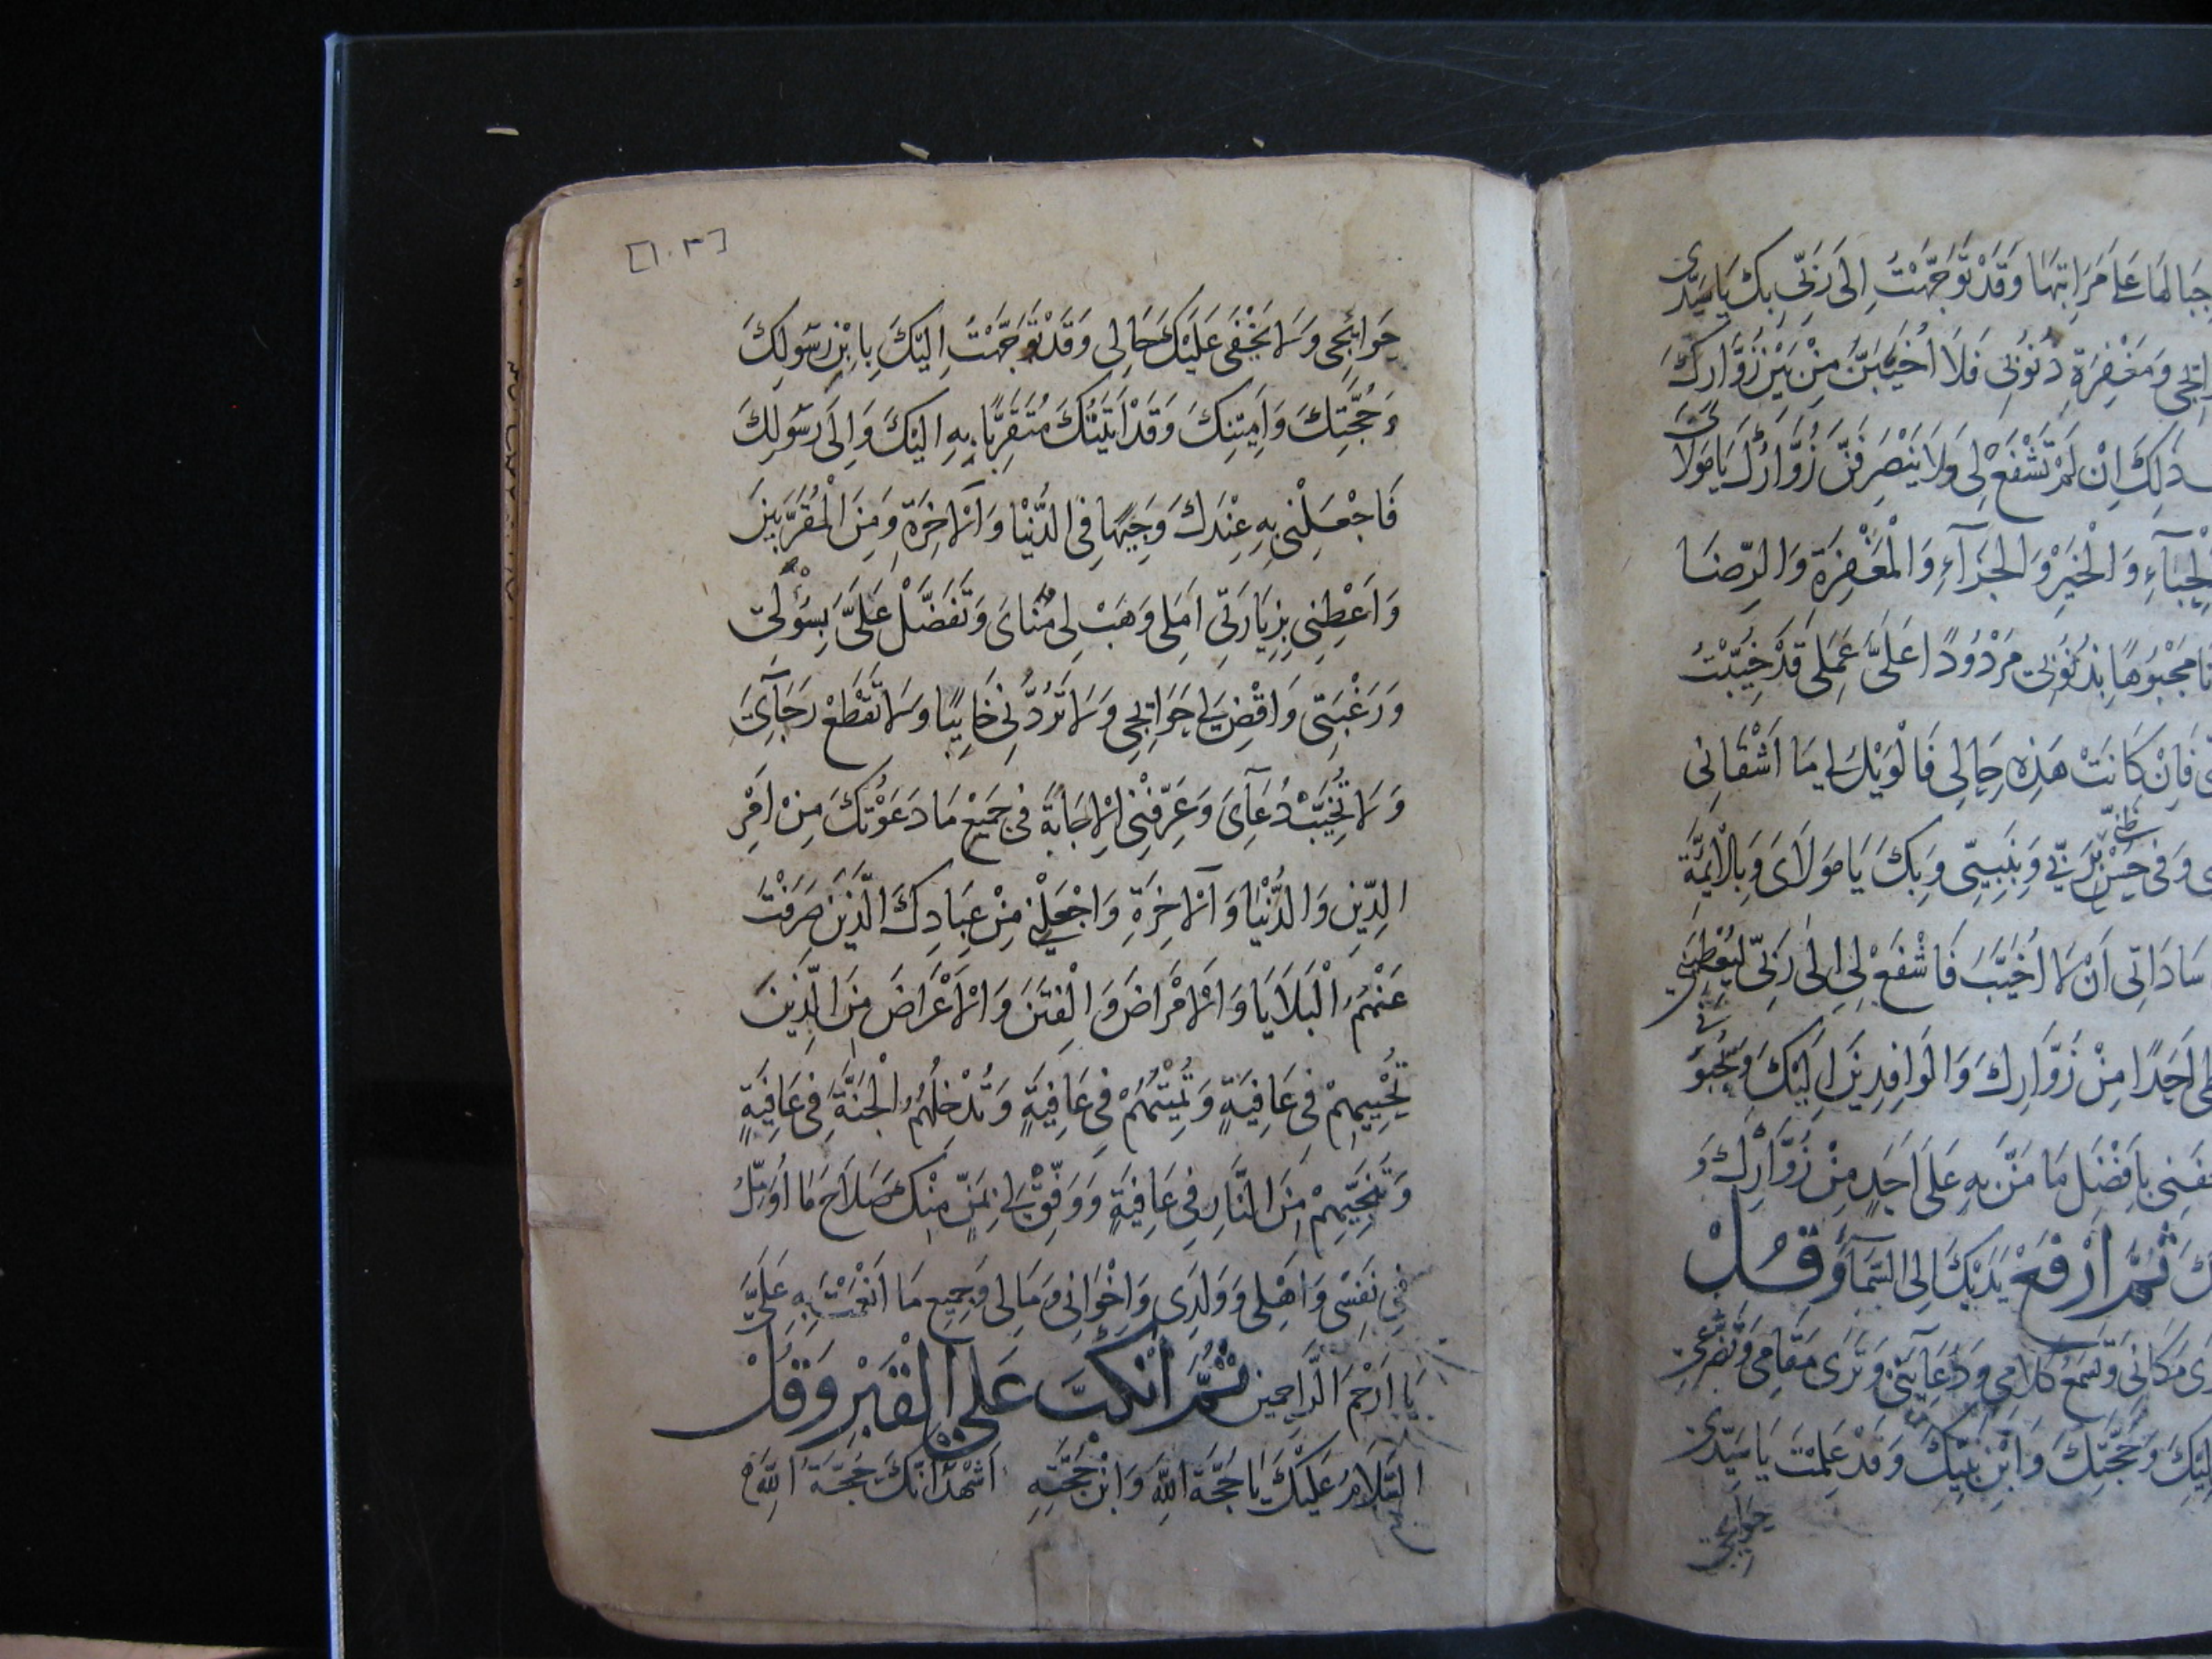 جِبَالَهَا عَلَى مَرَاتِبِهَا وَقَدْ تَوَجَّهْتُ اِلَى رَبِّي بِكَ يَا سَيِّدِي
وَمَغْفِرَةِ ذُنُوبِي فَلَا اُخَيَّبَنَّ مِنْ بَيْنِ زُوَّارِكَ
ذَلِكَ اِنْ لَمْ تَشْفَعْ لِي وَلَا يَنْصَرِفَنَّ زُوَّارُكَ يَا مَوْلَايَ
وَالْخَيْرِ وَالْجَزَآءِ وَالْمَغْفِرَةِ وَالرِّضَا
مَجْبُوهًا بِذُنُوبِي مَرْدُودًا عَلَيَّ عَمَلِي قَدْ خُيِّبْتُ
فَاِنْ كَانَتْ هَذِهِ حَالِي فَالْوَيْلُ لِي مَا اَشْقَانِي
وَفِي حُسْنِ ظَنِّي بِرَبِّي وَبِنَبِيِّي وَبِكَ يَا مَوْلَايَ وَبِالْاَئِمَّةِ
سَادَاتِي اَنْ لَا اُخَيَّبَ فَاشْفَعْ لِي اِلَى رَبِّي لِيُعْطِيَنِي
اَحَدًا مِنْ زُوَّارِكَ وَالْوَافِدِينَ اِلَيْكَ وَيَحْبُوَنِي
بِاَفْضَلِ مَا مَنَّ بِهِ عَلَى اَحَدٍ مِنْ زُوَّارِكَ وَ
ثُمَّ ارْفَعْ يَدَيْكَ اِلَى السَّمَآءِ وَقُلْ
مَكَانِي وَتَسْمَعُ كَلَامِي وَدُعَآئِي وَتَرَى مَقَامِي وَتَضَرُّعِي
وَحُجَّتِكَ وَابْنِ نَبِيِّكَ وَقَدْ عَلِمْتَ يَا سَيِّدِي
حَوَائِجِي
[١٠٣]
حَوَائِجِي وَلَا يَخْفَى عَلَيْكَ حَالِي وَقَدْ تَوَجَّهْتُ اِلَيْكَ بِابْنِ رَسُولِكَ
وَحُجَّتِكَ وَاَمِينِكَ وَقَدْ اَتَيْتُكَ مُتَقَرِّبًا بِهِ اِلَيْكَ وَاِلَى رَسُولِكَ
فَاجْعَلْنِي بِهِ عِنْدَكَ وَجِيهًا فِي الدُّنْيَا وَالْآخِرَةِ وَمِنَ الْمُقَرَّبِينَ
وَاَعْطِنِي بِزِيَارَتِي اَمَلِي وَهَبْ لِي مُنَايَ وَتَفَضَّلْ عَلَيَّ بِسُؤْلِي
وَرَغْبَتِي وَاقْضِ لِي حَوَائِجِي وَلَا تَرُدَّنِي خَائِبًا وَلَا تَقْطَعْ رَجَآئِي
وَلَا تُخَيِّبْ دُعَآئِي وَعَرِّفْنِي الْاِجَابَةَ فِي جَمِيعِ مَا دَعَوْتُكَ مِنْ اَمْرِ
الدِّينِ وَالدُّنْيَا وَالْآخِرَةِ وَاجْعَلْنِي مِنْ عِبَادِكَ الَّذِينَ صَرَفْتَ
عَنْهُمُ الْبَلَايَا وَالْاَمْرَاضَ وَالْفِتَنَ وَالْاَعْرَاضَ مِنَ الَّذِينَ
تُحْيِيهِمْ فِي عَافِيَةٍ وَتُمِيتُهُمْ فِي عَافِيَةٍ وَتُدْخِلُهُمُ الْجَنَّةَ فِي عَافِيَةٍ
وَتُنْجِيهِمْ مِنَ النَّارِ فِي عَافِيَةٍ وَوَفِّقْ لِي بِمَنٍّ مِنْكَ صَلَاحَ مَا اُؤَمِّلُ
فِي نَفْسِي وَاَهْلِي وَوَلَدِي وَاِخْوَانِي وَمَالِي وَجَمِيعِ مَا اَنْعَمْتَ بِهِ عَلَيَّ
يَا اَرْحَمَ الرَّاحِمِين ثُمَّ انْكَبَّ عَلَى الْقَبْرِ وَقُلْ
السَّلَامُ عَلَيْكَ يَا حُجَّةَ اللهِ وَابْنَ حُجَّتِهِ اَشْهَدُ اَنَّكَ حُجَّةُ اللهِ